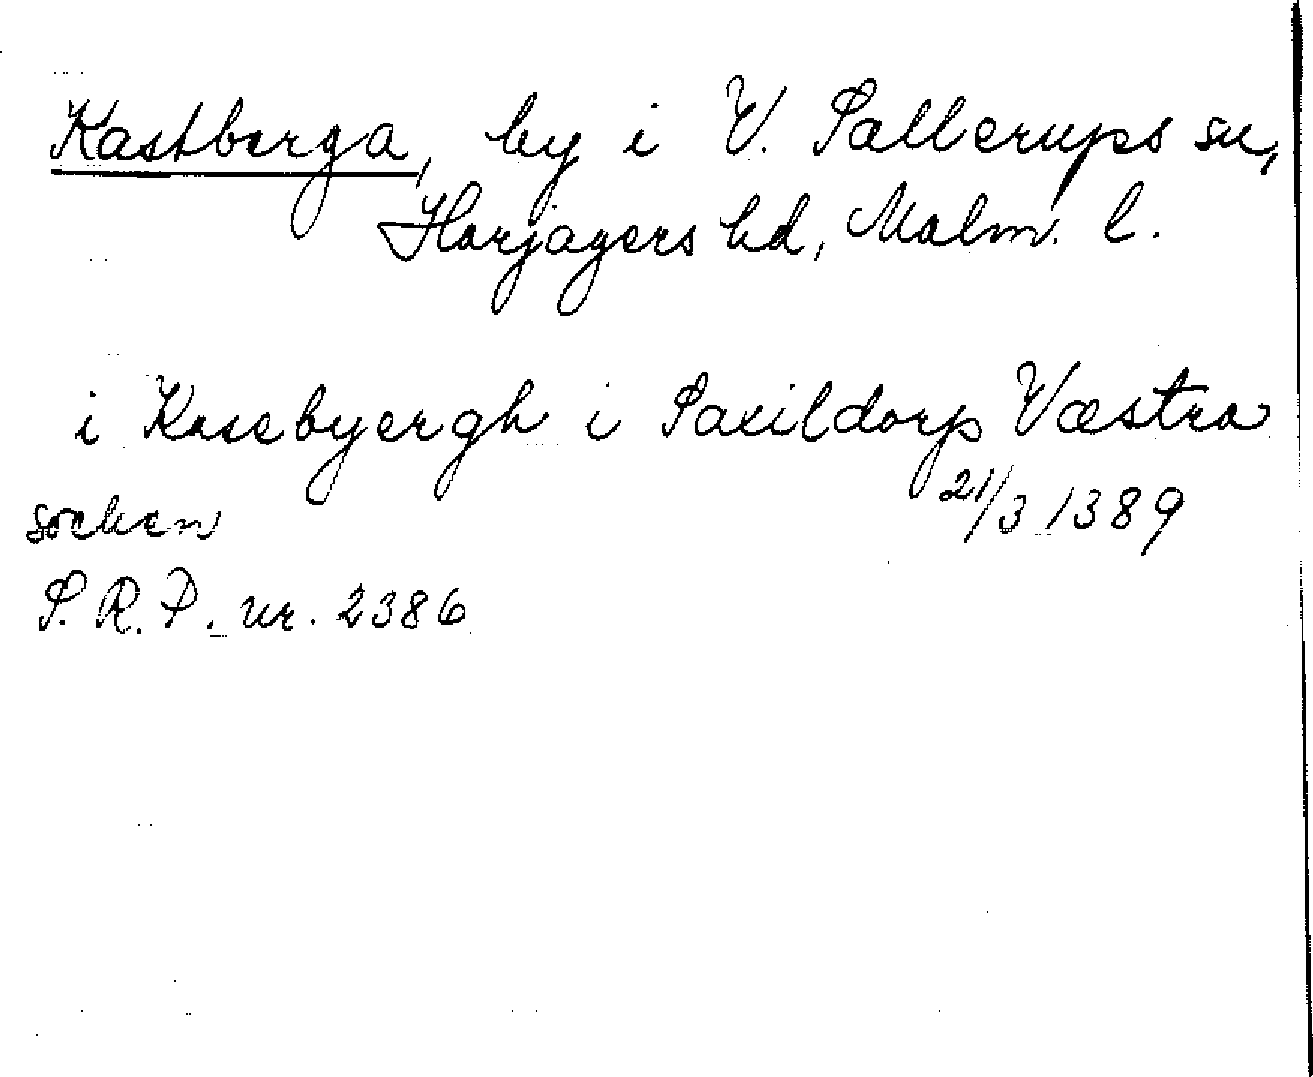 Kastberga, by i V. Sallerups sn,
Harjagers hd, Malm. l.
i Kasebyergh i Saxildorp Væstra
socken 21/3 1389
S.R.P. nr. 2386